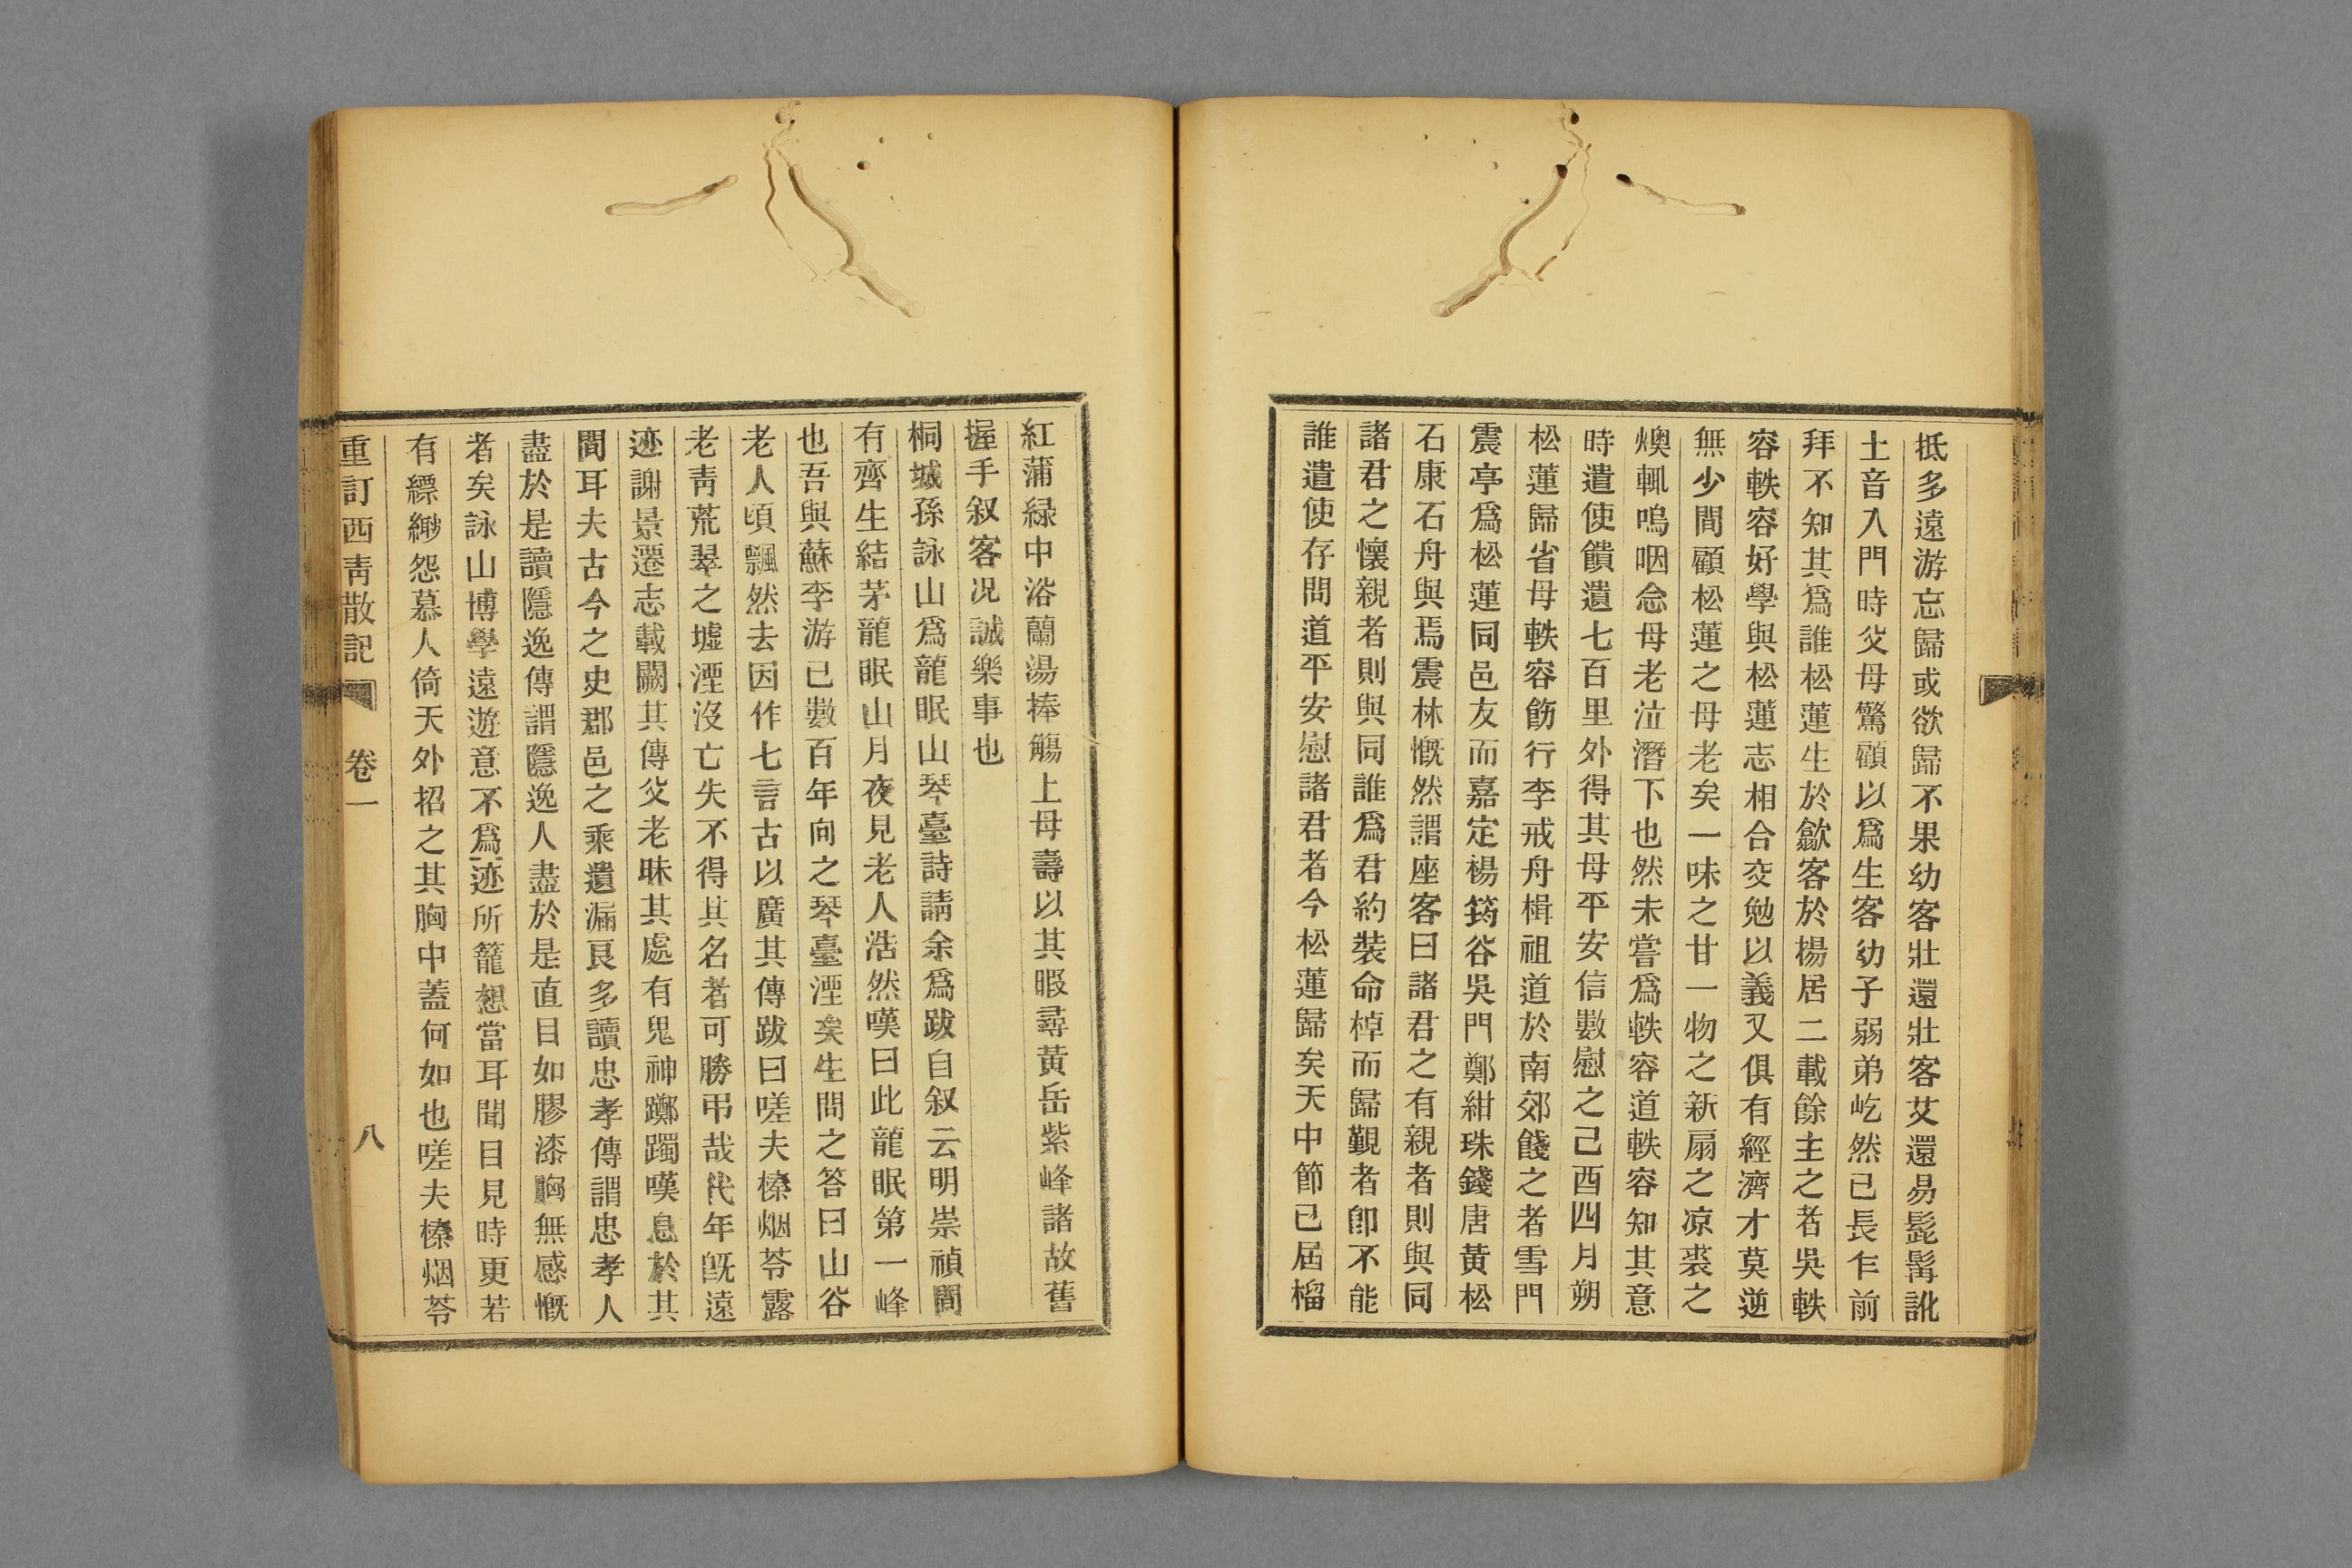 抵多遠游忘歸或欲歸不果幼客壯還壯客艾還易髭髯訛
土音入門時父母驚顧以爲生客幼子弱弟屹然已長乍前
拜不知其爲誰松蓮生於歙客於揚居二載餘主之者吳軼
容軼容好學與松蓮志相合交勉以義又俱有經濟才莫逆
無少間顧松蓮之母老矣一味之甘一物之新扇之凉裘之
燠輒嗚咽念母老泣潛下也然未嘗爲軼容道軼容知其意
時遣使饋遺七百里外得其母平安信數慰之己酉四月朔
松蓮歸省母軼容飭行李戒舟楫祖道於南郊餞之者雪門
震亭爲松蓮同邑友而嘉定楊筠谷吳門鄭紺珠錢唐黃松
石康石舟與焉震林慨然謂座客曰諸君之有親者則與同
諸君之懷親者則與同誰爲君約裝命棹而歸覲者卽不能
誰遣使存問道平安慰諸君者今松蓮歸矣天中節已屆榴
紅蒲綠中浴蘭湯捧觴上母壽以其暇尋黃岳紫峰諸故舊
握手叙客况誠樂事也
桐城孫詠山爲龍眠山琴臺詩請余爲跋自叙云明崇禎間
有齊生結茅龍眠山月夜見老人浩然嘆曰此龍眠第一峰
也吾與蘇李游已數百年向之琴臺湮矣生問之答曰山谷
老人頃飄然去因作七言古以廣其傳跋曰嗟夫榛烟苓露
老靑荒翠之墟湮沒亡失不得其名者可勝弔哉代年旣遠
迹謝景遷志載闕其傳父老昧其處有鬼神躑躅嘆息於其
間耳夫古今之史郡邑之乘遺漏良多讀忠孝傳謂忠孝人
盡於是讀隱逸傳謂隱逸人盡於是直目如膠漆胸無感慨
者矣詠山博學遠遊意不爲迹所籠想當耳聞目見時更若
有縹緲怨慕人倚天外招之其胸中蓋何如也嗟夫榛烟苓
重訂西靑散記 卷一 八